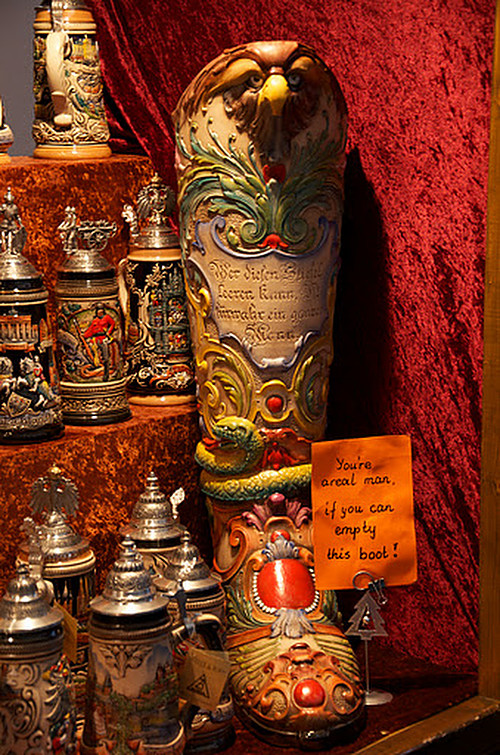 Wer diesen Stiefel
leeren kann, Ist
fürwahr ein ganzer
Mann
You're
a real man,
if you can
empty
this boot!